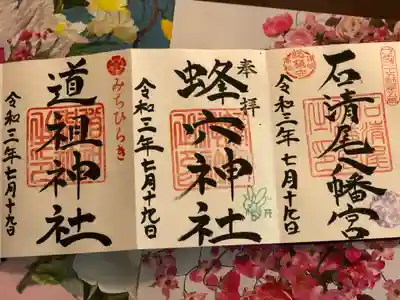 石清尾八幡宮
令和三年七月十九日
奉拝
蜂穴神社
令和三年七月十九日
みちひらき
道祖神社
令和三年七月十九日